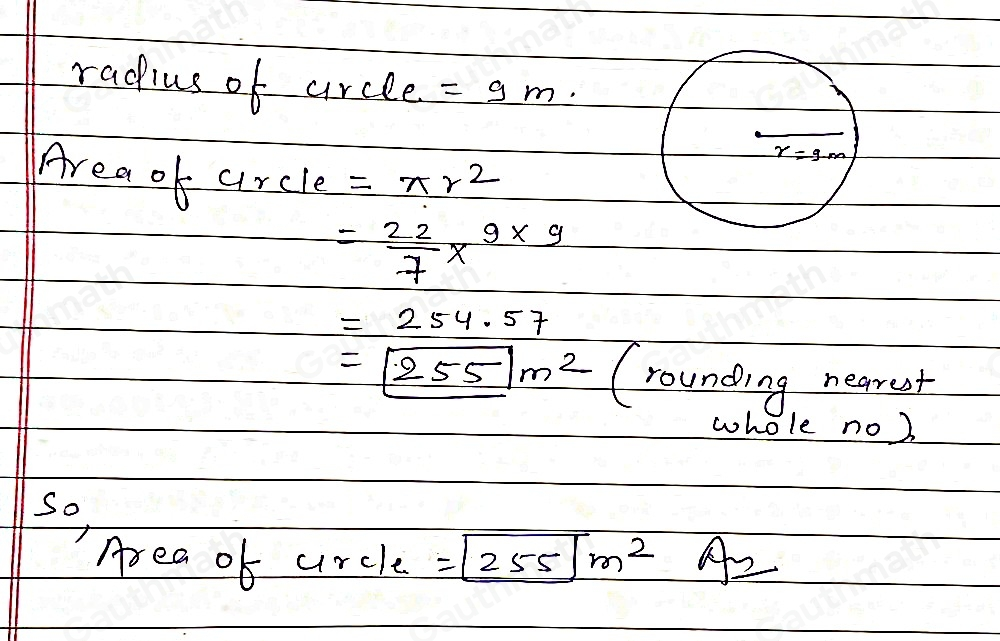 radius of circle = 9 m.
r = 9m
Area of circle = πr2
= 22/7 x 9 x 9
= 254.57
= 255 m2 (rounding nearest
whole no).
So,
Area of circle = 255 m2 Ans
Gauthmath